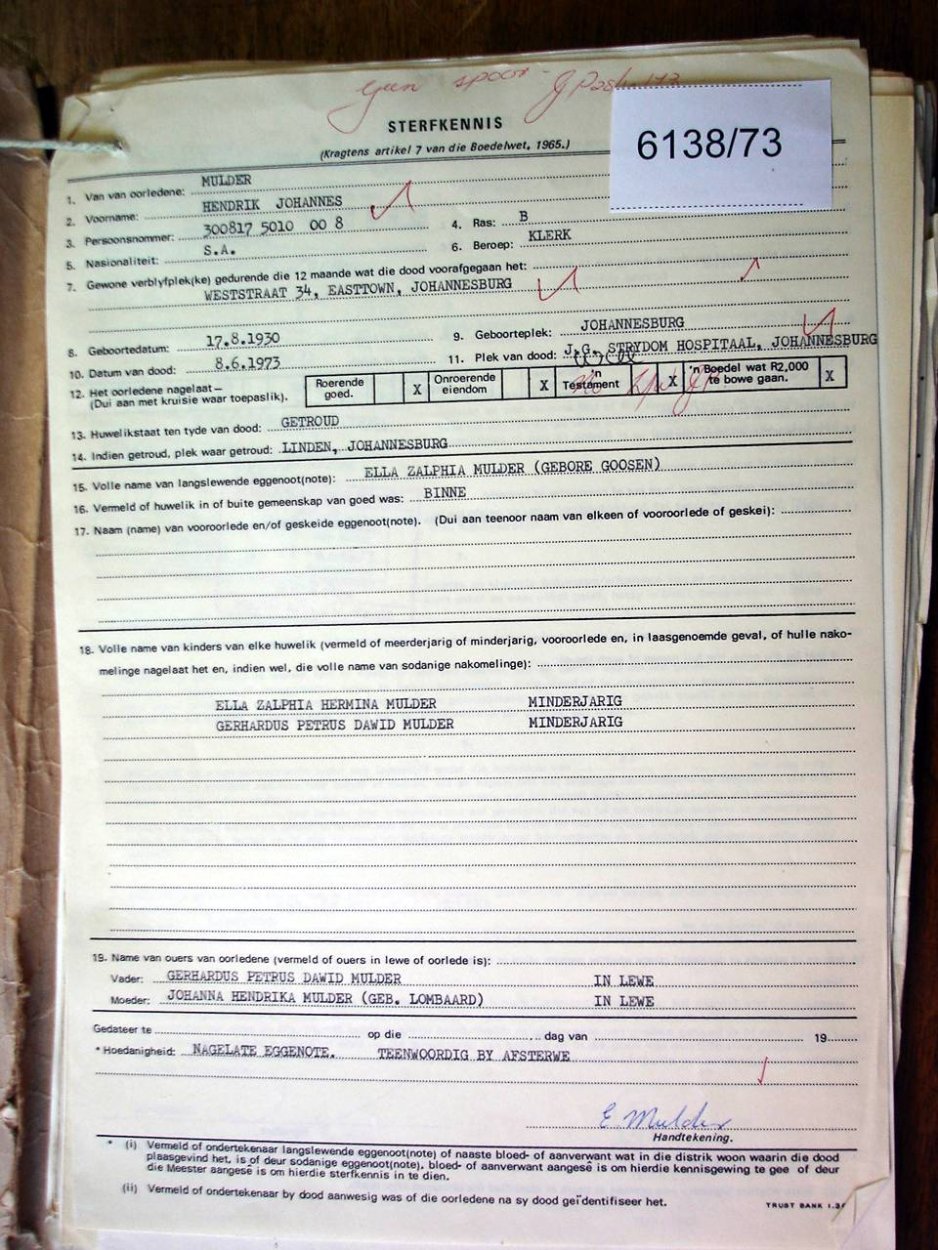 Geen spoor
6138/73
STERFKENNIS
(Kragtens artikel 7 van die Boedelwet, 1965.)
1. Van van oorledene: MULDER
2. Voorname: HENDRIK JOHANNES
3. Persoonsnommer: 300817 5010 00 8 4. Ras: B
5. Nasionaliteit: S.A. 6. Beroep: KLERK
7. Gewone verblyfplek(ke) gedurende die 12 maande wat die dood voorafgegaan het:
WESTSTRAAT 34, EASTTOWN, JOHANNESBURG
8. Geboortedatum: 17.8.1930 9. Geboorteplek: JOHANNESBURG
10. Datum van dood: 8.6.1973 11. Plek van dood: J.G. STRYDOM HOSPITAAL, JOHANNESBURG
12. Het oorledene nagelaat— Roerende goed. X Onroerende eiendom X 'n Testament X 'n Boedel wat R2,000 te bowe gaan. X
(Dui aan met kruisie waar toepaslik).
13. Huwelikstaat ten tyde van dood: GETROUD
14. Indien getroud, plek waar getroud: LINDEN, JOHANNESBURG
15. Volle name van langslewende eggenoot(note): ELLA ZALPHIA MULDER (GEBORE GOOSEN)
16. Vermeld of huwelik in of buite gemeenskap van goed was: BINNE
17. Naam (name) van vooroorlede en/of geskeide eggenoot(note). (Dui aan teenoor naam van elkeen of vooroorlede of geskei):
18. Volle name van kinders van elke huwelik (vermeld of meerderjarig of minderjarig, vooroorlede en, in laasgenoemde geval, of hulle nako-
melinge nagelaat het en, indien wel, die volle name van sodanige nakomelinge):
ELLA ZALPHIA HERMINA MULDER MINDERJARIG
GERHARDUS PETRUS DAWID MULDER MINDERJARIG
19. Name van ouers van oorledene (vermeld of ouers in lewe of oorlede is):
Vader: GERHARDUS PETRUS DAWID MULDER IN LEWE
Moeder: JOHANNA HENDRIKA MULDER (GEB. LOMBAARD) IN LEWE
Gedateer te op die dag van 19
* Hoedanigheid: NAGELATE EGGENOTE. TEENWOORDIG BY AFSTERWE
E Mulder
Handtekening.
* (i) Vermeld of ondertekenaar langslewende eggenoot(note) of naaste bloed- of aanverwant wat in die distrik woon waarin die dood
plaasgevind het, is of deur sodanige eggenoot(note), bloed- of aanverwant aangesê is om hierdie kennisgewing te gee of deur
die Meester aangesê is om hierdie sterfkennis in te dien.
(ii) Vermeld of ondertekenaar by dood aanwesig was of die oorledene na sy dood geïdentifiseer het.
TRUST BANK